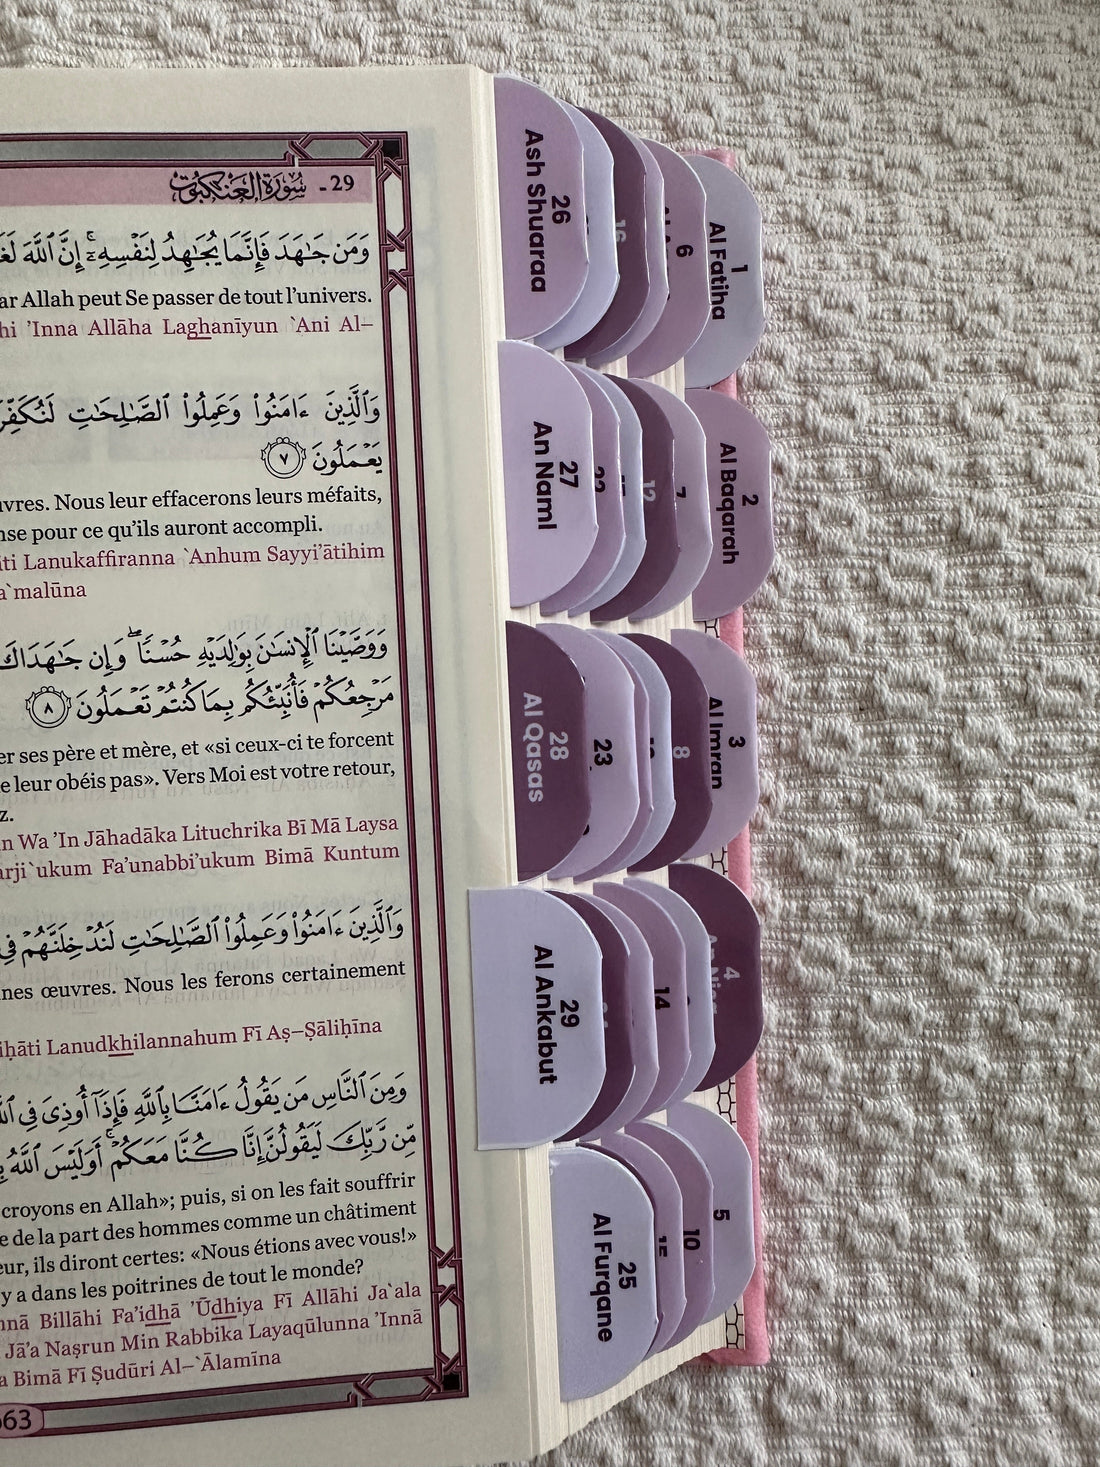 29 - سورة العنكبوت
وَمَن جَـٰهَدَ فَإِنَّمَا يُجَـٰهِدُ لِنَفْسِهِۦٓ ۚ إِنَّ ٱللَّهَ
ar Allah peut Se passer de tout l’univers.
hi ’Inna Allāha Laghanīyun `Ani Al–
وَٱلَّذِينَ ءَامَنُوا۟ وَعَمِلُوا۟ ٱلصَّـٰلِحَـٰتِ
يَعْمَلُونَ ٧
uvres. Nous leur effacerons leurs méfaits,
nse pour ce qu’ils auront accompli.
iti Lanukaffiranna `Anhum Sayyi’ātihim
a`malūna
وَوَصَّيْنَا ٱلْإِنسَـٰنَ بِوَٰلِدَيْهِ حُسْنًا ۖ وَإِن جَـٰهَدَاكَ
مَرْجِعُكُمْ فَأُنَبِّئُكُم بِمَا كُنتُمْ تَعْمَلُونَ ٨
er ses père et mère, et «si ceux-ci te forcent
e leur obéis pas». Vers Moi est votre retour,
z.
n Wa ’In Jāhadāka Lituchrika Bī Mā Laysa
arji`ukum Fa’unabbi’ukum Bimā Kuntum
وَٱلَّذِينَ ءَامَنُوا۟ وَعَمِلُوا۟ ٱلصَّـٰلِحَـٰتِ لَنُدْخِلَنَّهُمْ فِى
nes œuvres. Nous les ferons certainement
iḥāti Lanudkhilannahum Fī Aṣ–Ṣāliḥīna
وَمِنَ ٱلنَّاسِ مَن يَقُولُ ءَامَنَّا بِٱللَّهِ فَإِذَآ أُوذِىَ فِى
مِّن رَّبِّكَ لَيَقُولُنَّ إِنَّا كُنَّا مَعَكُمْ ۚ أَوَلَيْسَ ٱللَّهُ
croyons en Allah»; puis, si on les fait souffrir
e de la part des hommes comme un châtiment
eur, ils diront certes: «Nous étions avec vous!»
y a dans les poitrines de tout le monde?
nnā Billāhi Fa’idhā ’Ūdhiya Fī Allāhi Ja`ala
Jā’a Naṣrun Min Rabbika Layaqūlunna ’Innā
a Bimā Fī Ṣudūri Al–`Ālamīna
663
26
Ash Shuaraa
16
6
1
Al Fatiha
27
An Naml
22
12
7
2
Al Baqarah
28
Al Qasas
23
8
3
Al Imran
29
Al Ankabut
14
4
25
Al Furqane
15
10
5